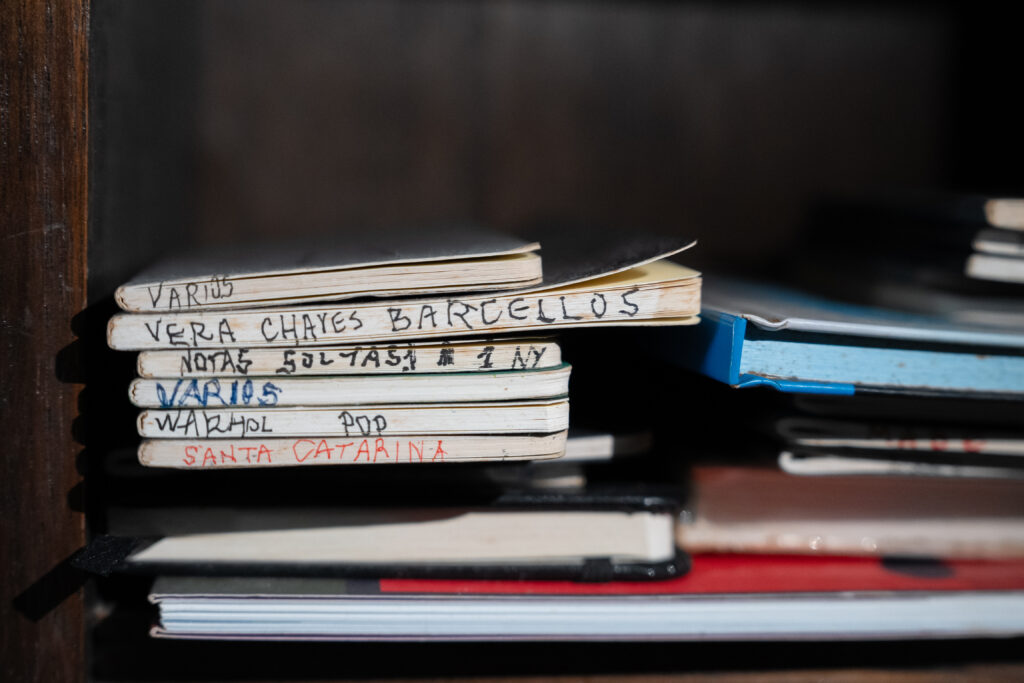 VARIOS
VERA CHAVES BARCELLOS
NOTAS SOLTAS # 1 NY
VARIOS
WARHOL POP
SANTA CATARINA